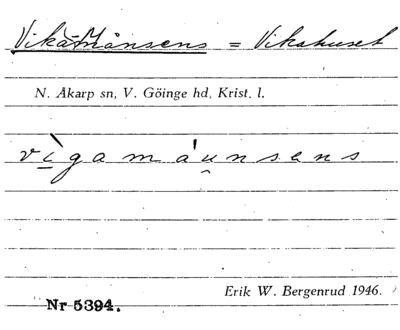 Vika-Månsens = Vikahuset
N. Åkarp sn, V. Göinge hd, Krist. l.
vìgamáu̯nsens
Erik W. Bergenrud 1946.
Nr 5394.